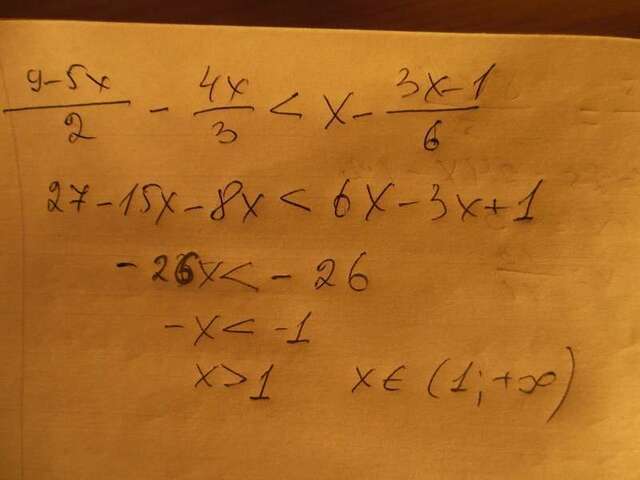 9-5x/2 - 4x/3 < x - 3x-1/6
27-15x-8x < 6x-3x+1
-26x < -26
-x < -1
x>1 x∈(1;+∞)